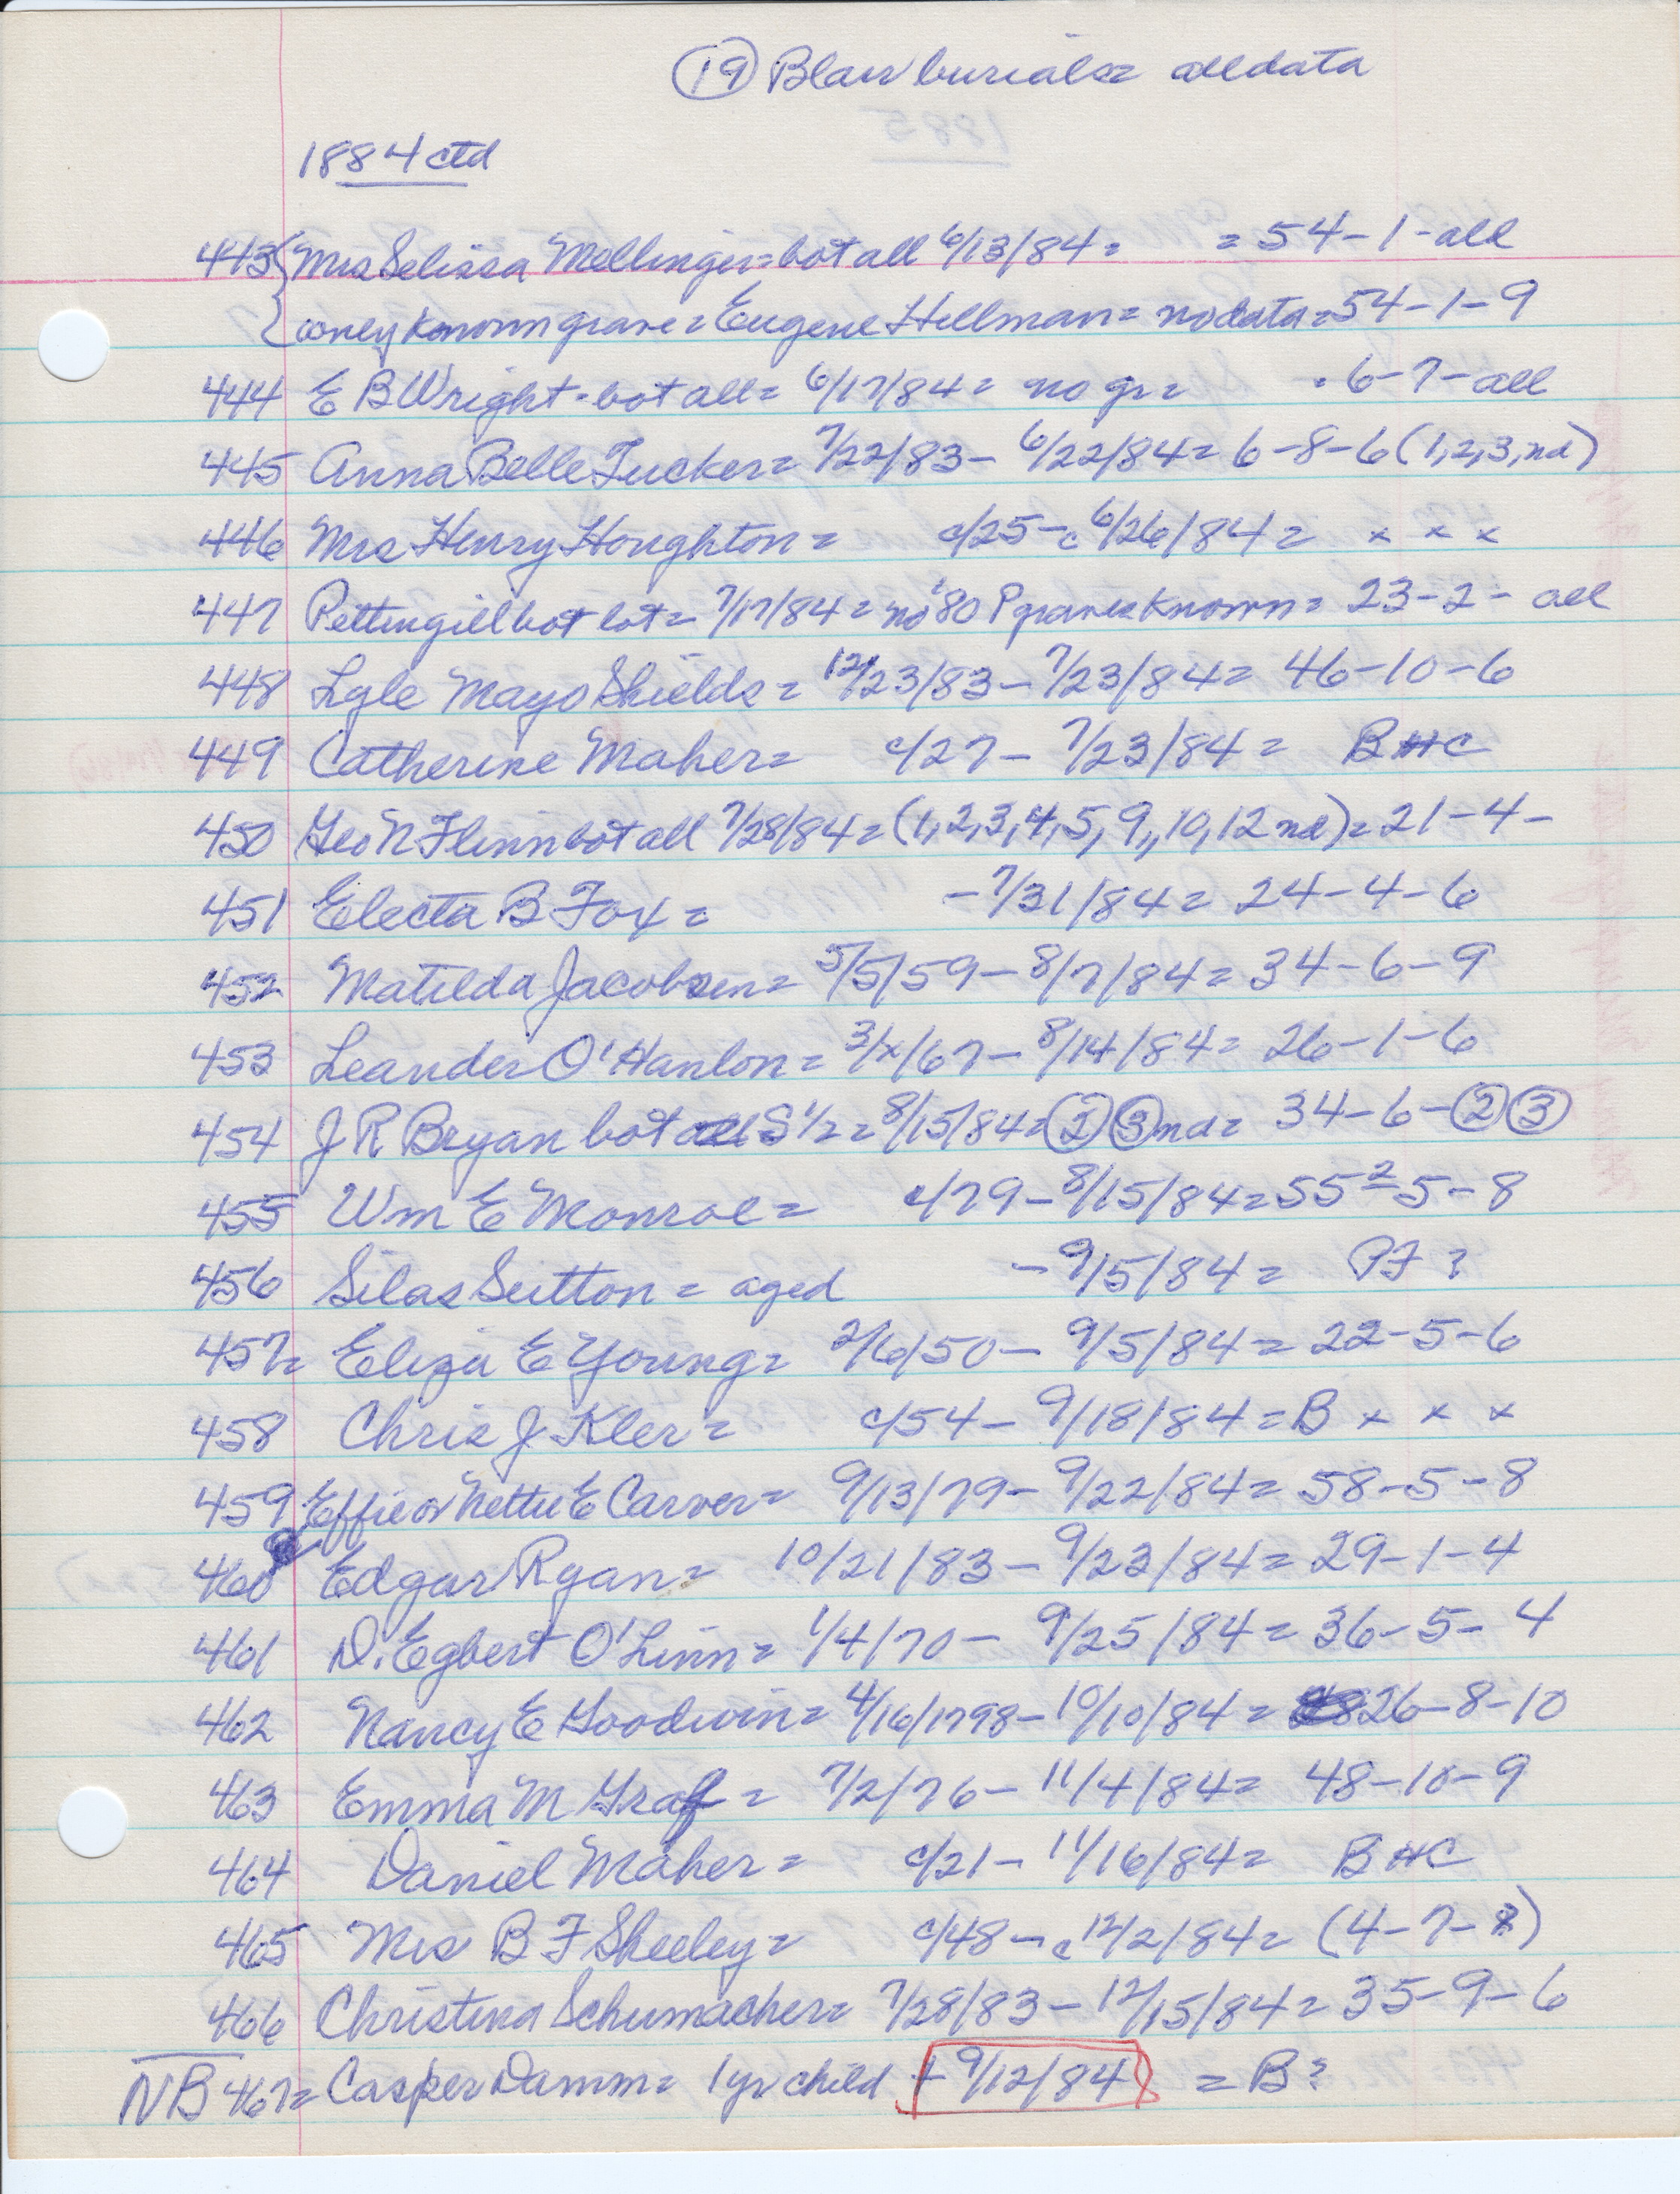 (19) Blair burials = all data
1884 ctd
443 { Mrs Selissa Mellinger = bot all 6/13/84 = = 54-1-all
{ only known grave = Eugene Hillman = no data = 54-1-9
444 E B Wright - bot all = 6/17/84 = no gr = = 6-7-all
445 Anna Belle Tucker = 7/22/83 - 6/22/84 = 6-8-6 (1,2,3,nd)
446 Mrs Henry Houghton = c/25 - c 6/26/84 = x x x
447 Pettingill bot lot = 7/17/84 = no '80 P graves known = 23-2- all
448 Lyle Mayo Shields = 12/23/83 - 7/23/84 = 46-10-6
449 Catherine Maher = c/27 - 7/23/84 = B HC
450 Geo N Flinn bot all 7/28/84 = (1,2,3,4,5,9,,10,12 nd) = 21-4-
451 Electa B Fox = - 7/31/84 = 24-4-6
452 Matilda Jacobsen = 5/5/59 - 8/7/84 = 34-6-9
453 Leander O'Hanlon = 3/x/67 - 8/14/84 = 26-1-6
454 J R Bryan bot S 1/2 = 8/15/84 = (2) (3) nd = 34-6-(2) (3)
455 Wm E Monroe = c/79 - 8/15/84 = 55²-5-8
456 Silas Sutton = aged - 9/5/84 = PF ?
457 = Eliza E Young = 2/6/50 - 9/5/84 = 22-5-6
458 Chris J Kler = c/54 - 9/18/84 = B x x x
459 Effie or Nettie E Carver = 9/13/79 - 9/22/84 = 58-5-8
460 Edgar Ryan = 10/21/83 - 9/23/84 = 29-1-4
461 D. Egbert O'Linn = 1/4/70 - 9/25/84 = 36-5-4
462 Nancy E Goodwin = 4/16/1798 - 10/10/84 = 26-8-10
463 Emma M Graf = 7/2/76 - 11/4/84 = 48-10-9
464 Daniel Maher = c/21 - 11/16/84 = B HC
465 Mrs B F Sheeley = c/48 - c 12/2/84 = (4-7-)
466 Christina Schumacher = 7/28/83 - 12/15/84 = 35-9-6
NB 467 = Casper Damm = 1 yr child + 9/12/84 = B ?